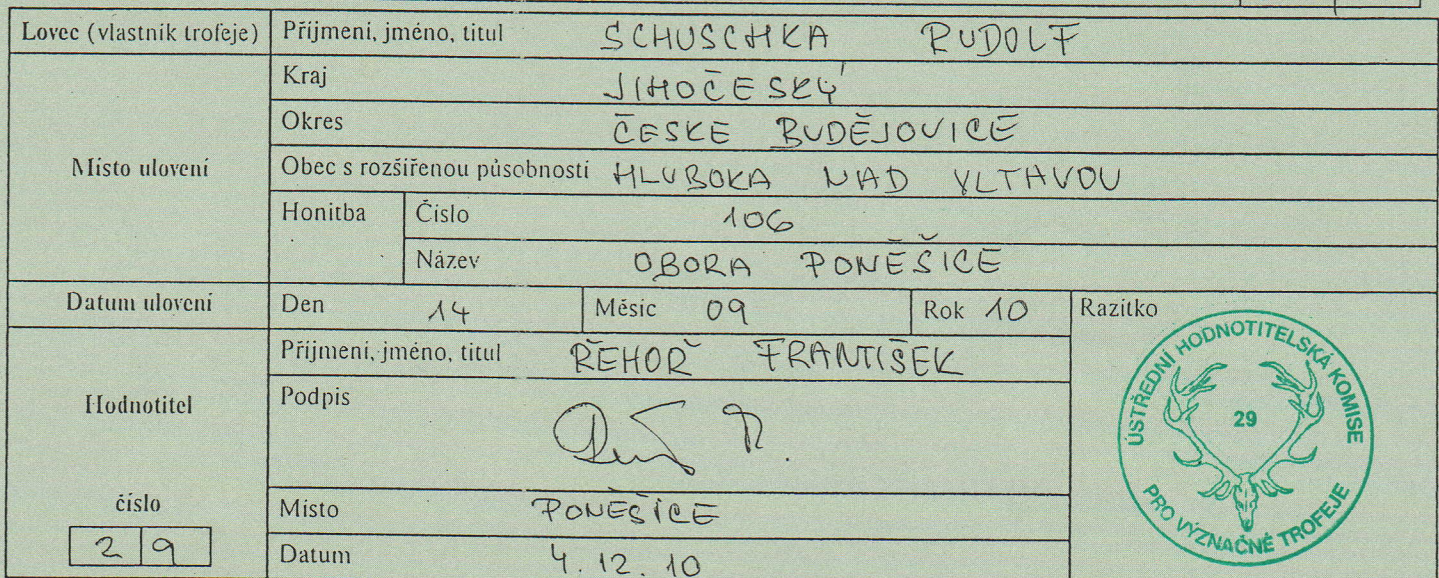 Lovec (vlastník trofeje) Příjmení, jméno, titul SCHUSCHKA RUDOLF
Místo ulovení
Kraj JIHOČESKÝ
Okres ČESKE BUDĚJOVICE
Obec s rozšířenou působností HLUBOKA NAD VLTAVOU
Honitba Číslo 106
Název OBORA PONĚŠICE
Datum ulovení Den 14 Měsíc 09 Rok 10
Razítko
Hodnotitel
Příjmení, jméno, titul ŘEHOŘ FRANTIŠEK
Podpis
číslo
29
Místo PONĚŠICE
Datum 4.12.10
ÚSTŘEDNÍ HODNOTITELSKÁ KOMISE
29
PRO VÝZNAČNÉ TROFEJE